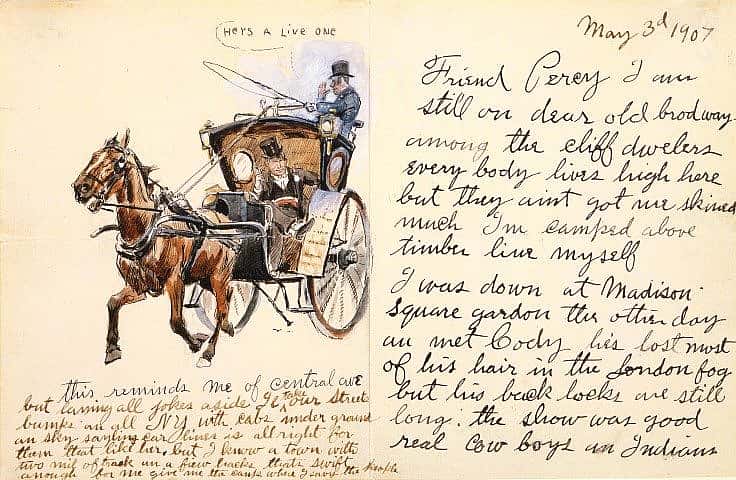 HERS A LIVE ONE
this reminds me of central ave
but laying all jokes aside Il take our Street
an all NY with cabs under ground
an sky sayling car lines is all right for
them that like her but I know a town with
two mil of track an a fiew hacks thats swift
anough for me give me the camp where I savy the people
May 3d 1907
Friend Percy I am
still on dear old brodway
among the cliff dwelers
every body lives high here
but they aint got me skined
much I'm camped above
timber line myself
I was down at Madison
Square gardon the other day
an met Cody hes lost most
of his hair in the London fog
but his back locks are still
long. the show was good
real cow boys an Indians